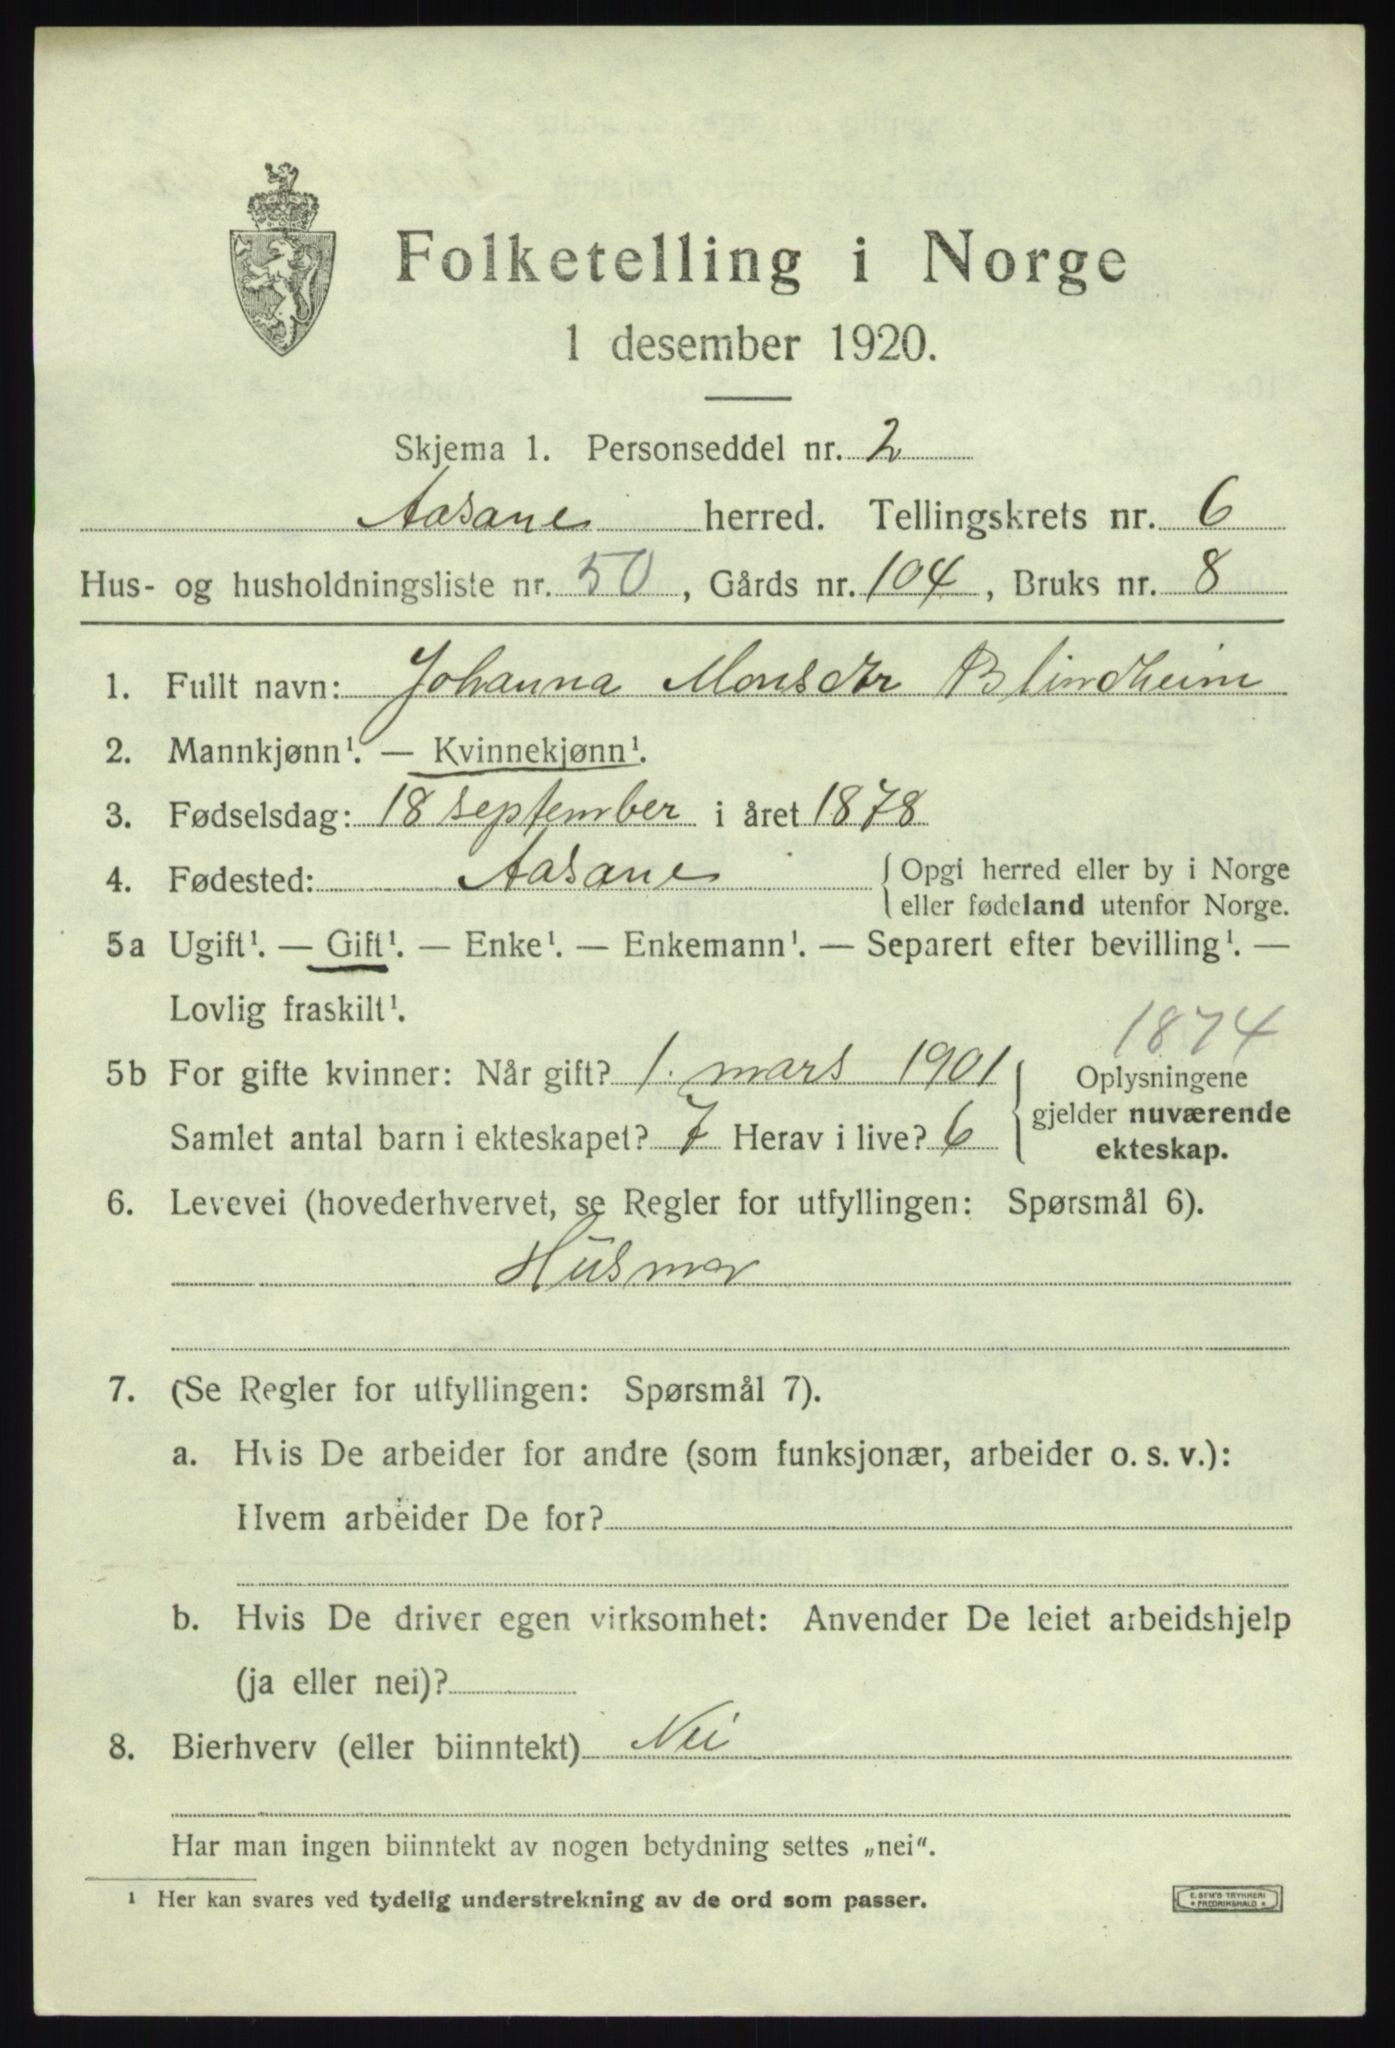 Folketelling i Norge
1 desember 1920.
Skjema 1. Personseddel nr. 2
Aasane herred. Tellingskrets nr. 6
Hus- og husholdningsliste nr. 50, Gårds nr. 104, Bruks nr. 8
1. Fullt navn: Johanna Monsdtr Blindheim
2. Mannkjønn¹. — Kvinnekjønn¹.
3. Fødselsdag: 18 september i året 1878
4. Fødested: Aasane { Opgi herred eller by i Norge
eller fødeland utenfor Norge.
5a Ugift¹. — Gift¹. — Enke¹. — Enkemann¹. — Separert efter bevilling¹. —
Lovlig fraskilt¹.
1874
5b For gifte kvinner: Når gift? 1. mars 1901 { Oplysningene
gjelder nuværende
Samlet antal barn i ekteskapet? 7 Herav i live? 6
ekteskap.
6. Levevei (hovederhvervet, se Regler for utfyllingen: Spørsmål 6).
Husmor
7. (Se Regler for utfyllingen: Spørsmål 7).
a. Hvis De arbeider for andre (som funksjonær, arbeider o. s. v.):
Hvem arbeider De for?
b. Hvis De driver egen virksomhet: Anvender De leiet arbeidshjelp
(ja eller nei)?
8. Bierhverv (eller biinntekt) Nei
Har man ingen biinntekt av nogen betydning settes „nei“.
¹ Her kan svares ved tydelig understrekning av de ord som passer.
E. SEM'S TRYKKERI
* FREDRIKSHALD *